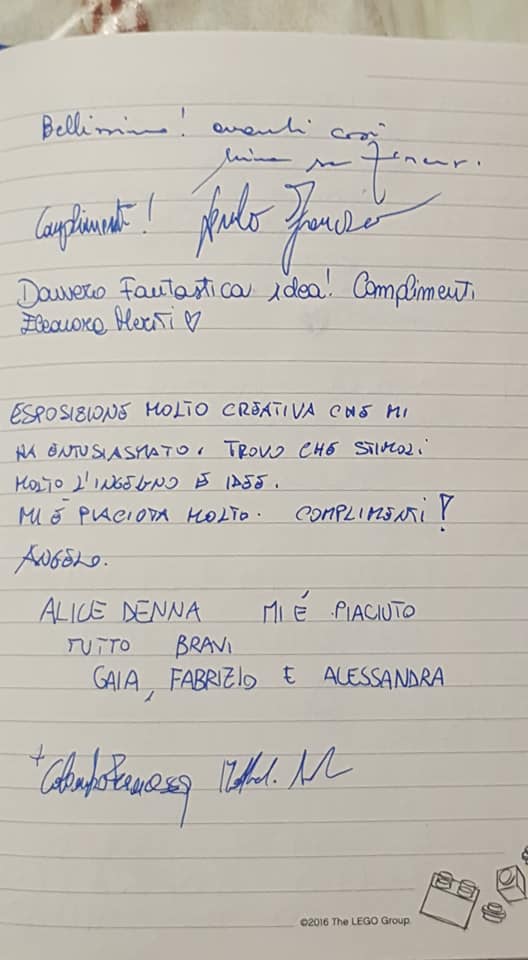 Bellissimo! avanti così
Complimenti!
Davvero Fantastica idea! Complimenti
Eleonora
ESPOSIZIONE MOLTO CREATIVA CHE MI
HA ENTUSIASMATO. TROVO CHE STIMOLI
MOLTO L'INGEGNO E IDEE.
MI È PIACIUTA MOLTO. COMPLIMENTI!
ANGELO.
ALICE DENNA MI É PIACIUTO
TUTTO BRAVI
GAIA, FABRIZIO E ALESSANDRA
©2016 The LEGO Group.